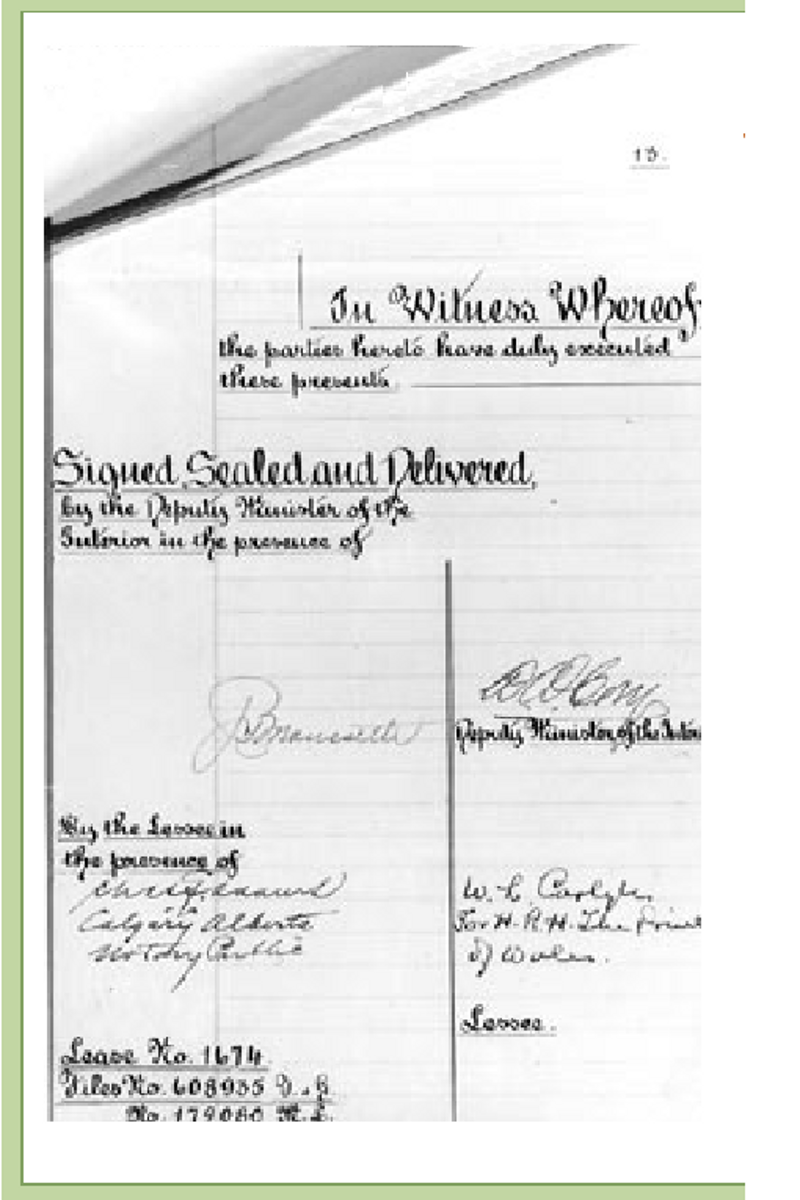 13.
In Witness Whereof
the parties hereto have duly executed
these presents.
Signed, Sealed and Delivered,
by the Deputy Minister of the
Interior in the presence of
W.W. Cory
Deputy Minister of the Inter
By the Lessee in
the presence of
Calgary Alberta
Notary Public
W. L. Carlyle
For H. R. H. The Prince
of Wales.
Lessee.
Lease No. 1674.
Files No. 608935
No. 179080